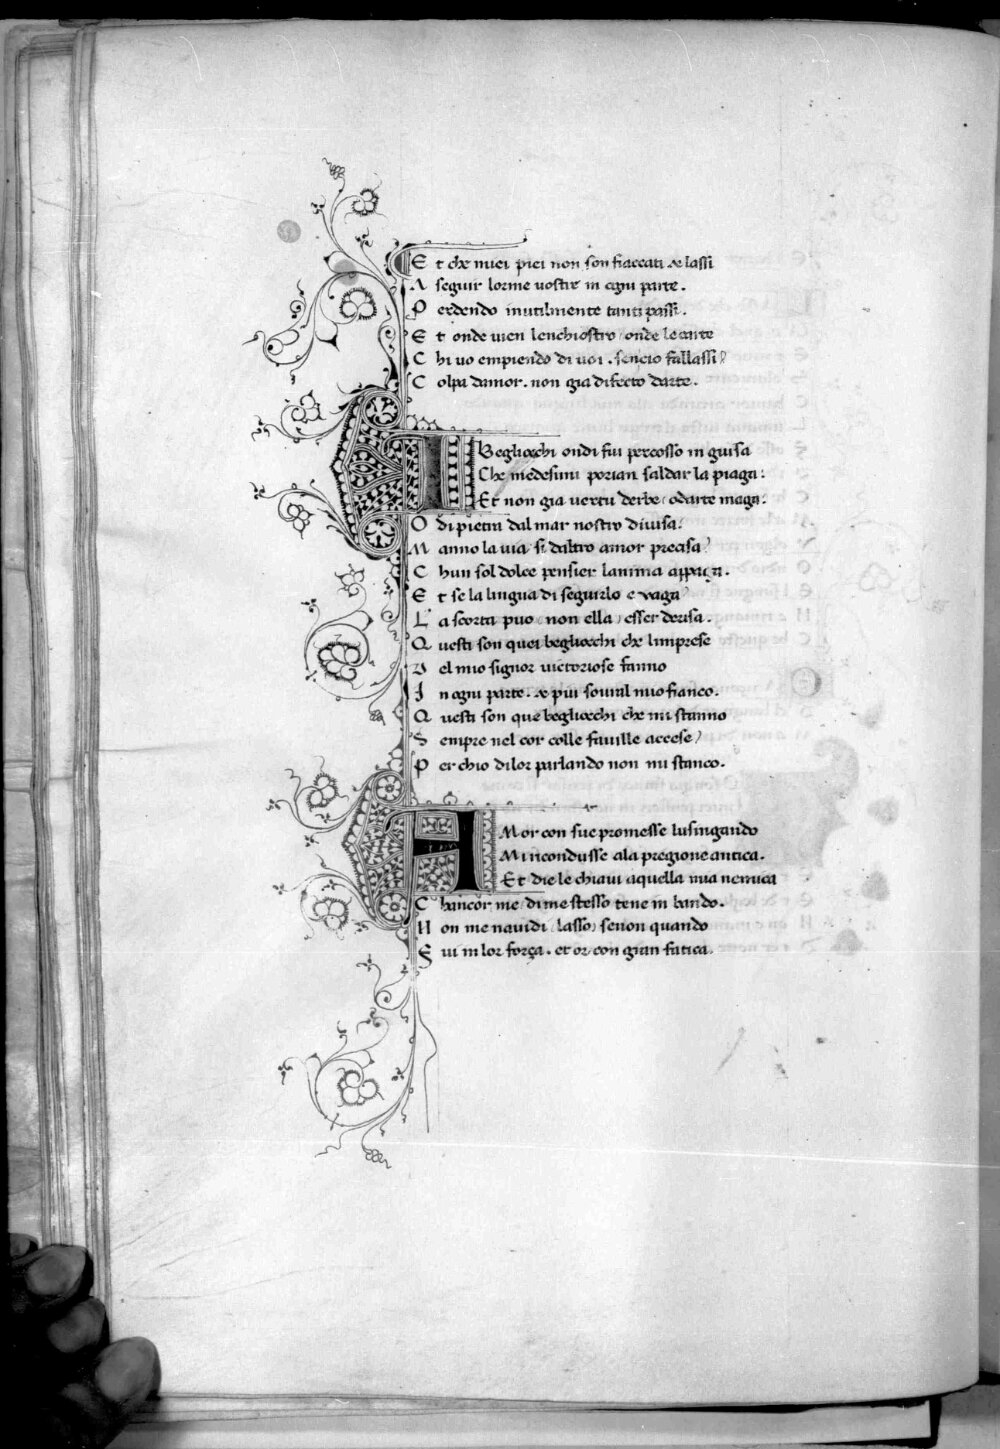 Et che miei piei non son fiaccati & lassi
A seguir lorme uostre in ogni parte.
Perdendo inutilmente tanti passi.
Et onde uien lenchiostro/ onde le carte
Chi uo empiendo di uoi. sencio fallassi/
Colpa damor. non gia difecto darte.
I Begliocchi ondi fui percosso in guisa
Che medesimi porian saldar la piaga:
Et non gia uertu derbe/ o darte maga:
O di pietra dal mar nostro diuisa:
Manno la uia/ si daltro amor precisa/
Chun sol dolce pensier lanima appaga.
Et se la lingua di seguirlo e vaga/
La scorta puo/ non ella/ esser derisa.
Questi son quei begliocchi che limprese
Del mio signor victoriose fanno
In ogni parte. & piu soural mio fianco.
Questi son que begliocchi che mi stanno
Sempre nel cor colle fauille accese/
Perchio di lor parlando non mi stanco.
AMor con sue promesse lusingando
Mi ricondusse ala pregione antica.
Et die le chiaui aquella mia nemica
Chancor me di me stesso tene in bando.
Non me nauidi/ lasso/ se non quando
Fui in lor força. et or con gran fatica.